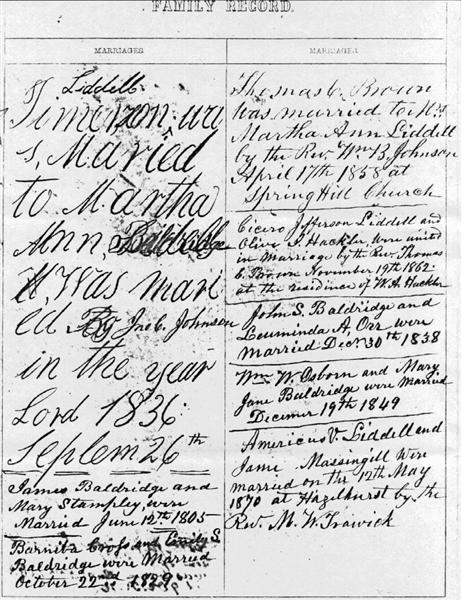 FAMILY RECORD.
MARRIAGES
Liddell
Timizon wa
s, Maried
to Martha
Ann, Baldridge
Was mari
ed By Jno C. Johnson
in the year
Lord 1836
Septem 26th
James Baldridge and
Mary Stampley were
Married June 12th 1805
Barnitz Cross and Emily S.
Baldridge were Married
October 22nd 1829
MARRIAGES
Thomas C. Brown
was married to Mrs
Martha Ann Liddell
by the Rev. Wm B. Johnson
April 17th 1858 at
Spring Hill Church
Cicero Jefferson Liddell and
Olive I. Hackler were united
in Marriage by the Rev. Thomas
C. Brown November 19th 1862
at the residence of W. A. Hackler
John S. Baldridge and
Leuminda A, Orr were
married Dec. 30th 1838
Wm W. Osborn and Mary
Jane Baldridge were Married
Decemer 19th 1849
Americus V. Liddell and
Jane Massingill were
married on the 12th May
1870 at Hazelhurst by the
Rev. M. W. Trawick